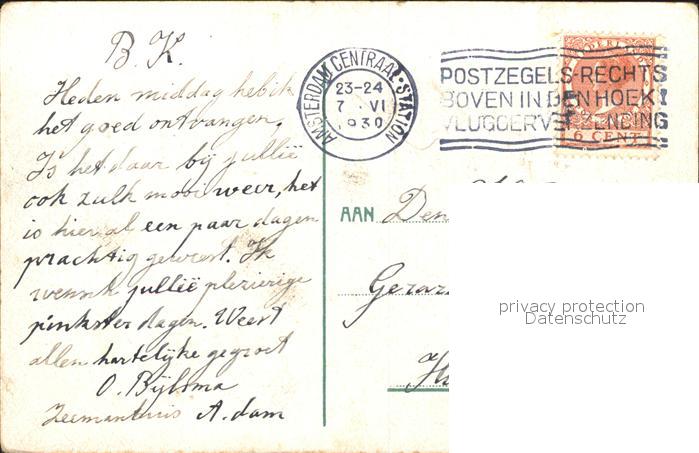 B. K.
Heden middag heb ik
het goed ontvangen,
Is het daar bij jullië
ook zulk mooi weer, het
is hier al een paar dagen
prachtig geweest. Ik
wensch jullië plezierige
pinksterdagen. Weest
allen hartelijke gegroet
O. Bijlsma
Zeemanshuis A.dam
AMSTERDAM CENTRAAL-STATION
23-24
7 . VI
1930
POSTZEGELS-RECHTS
BOVEN IN DEN HOEK!
VLUGGER VERZENDING
6 CENT
AAN Den
privacy protection
Datenschutz